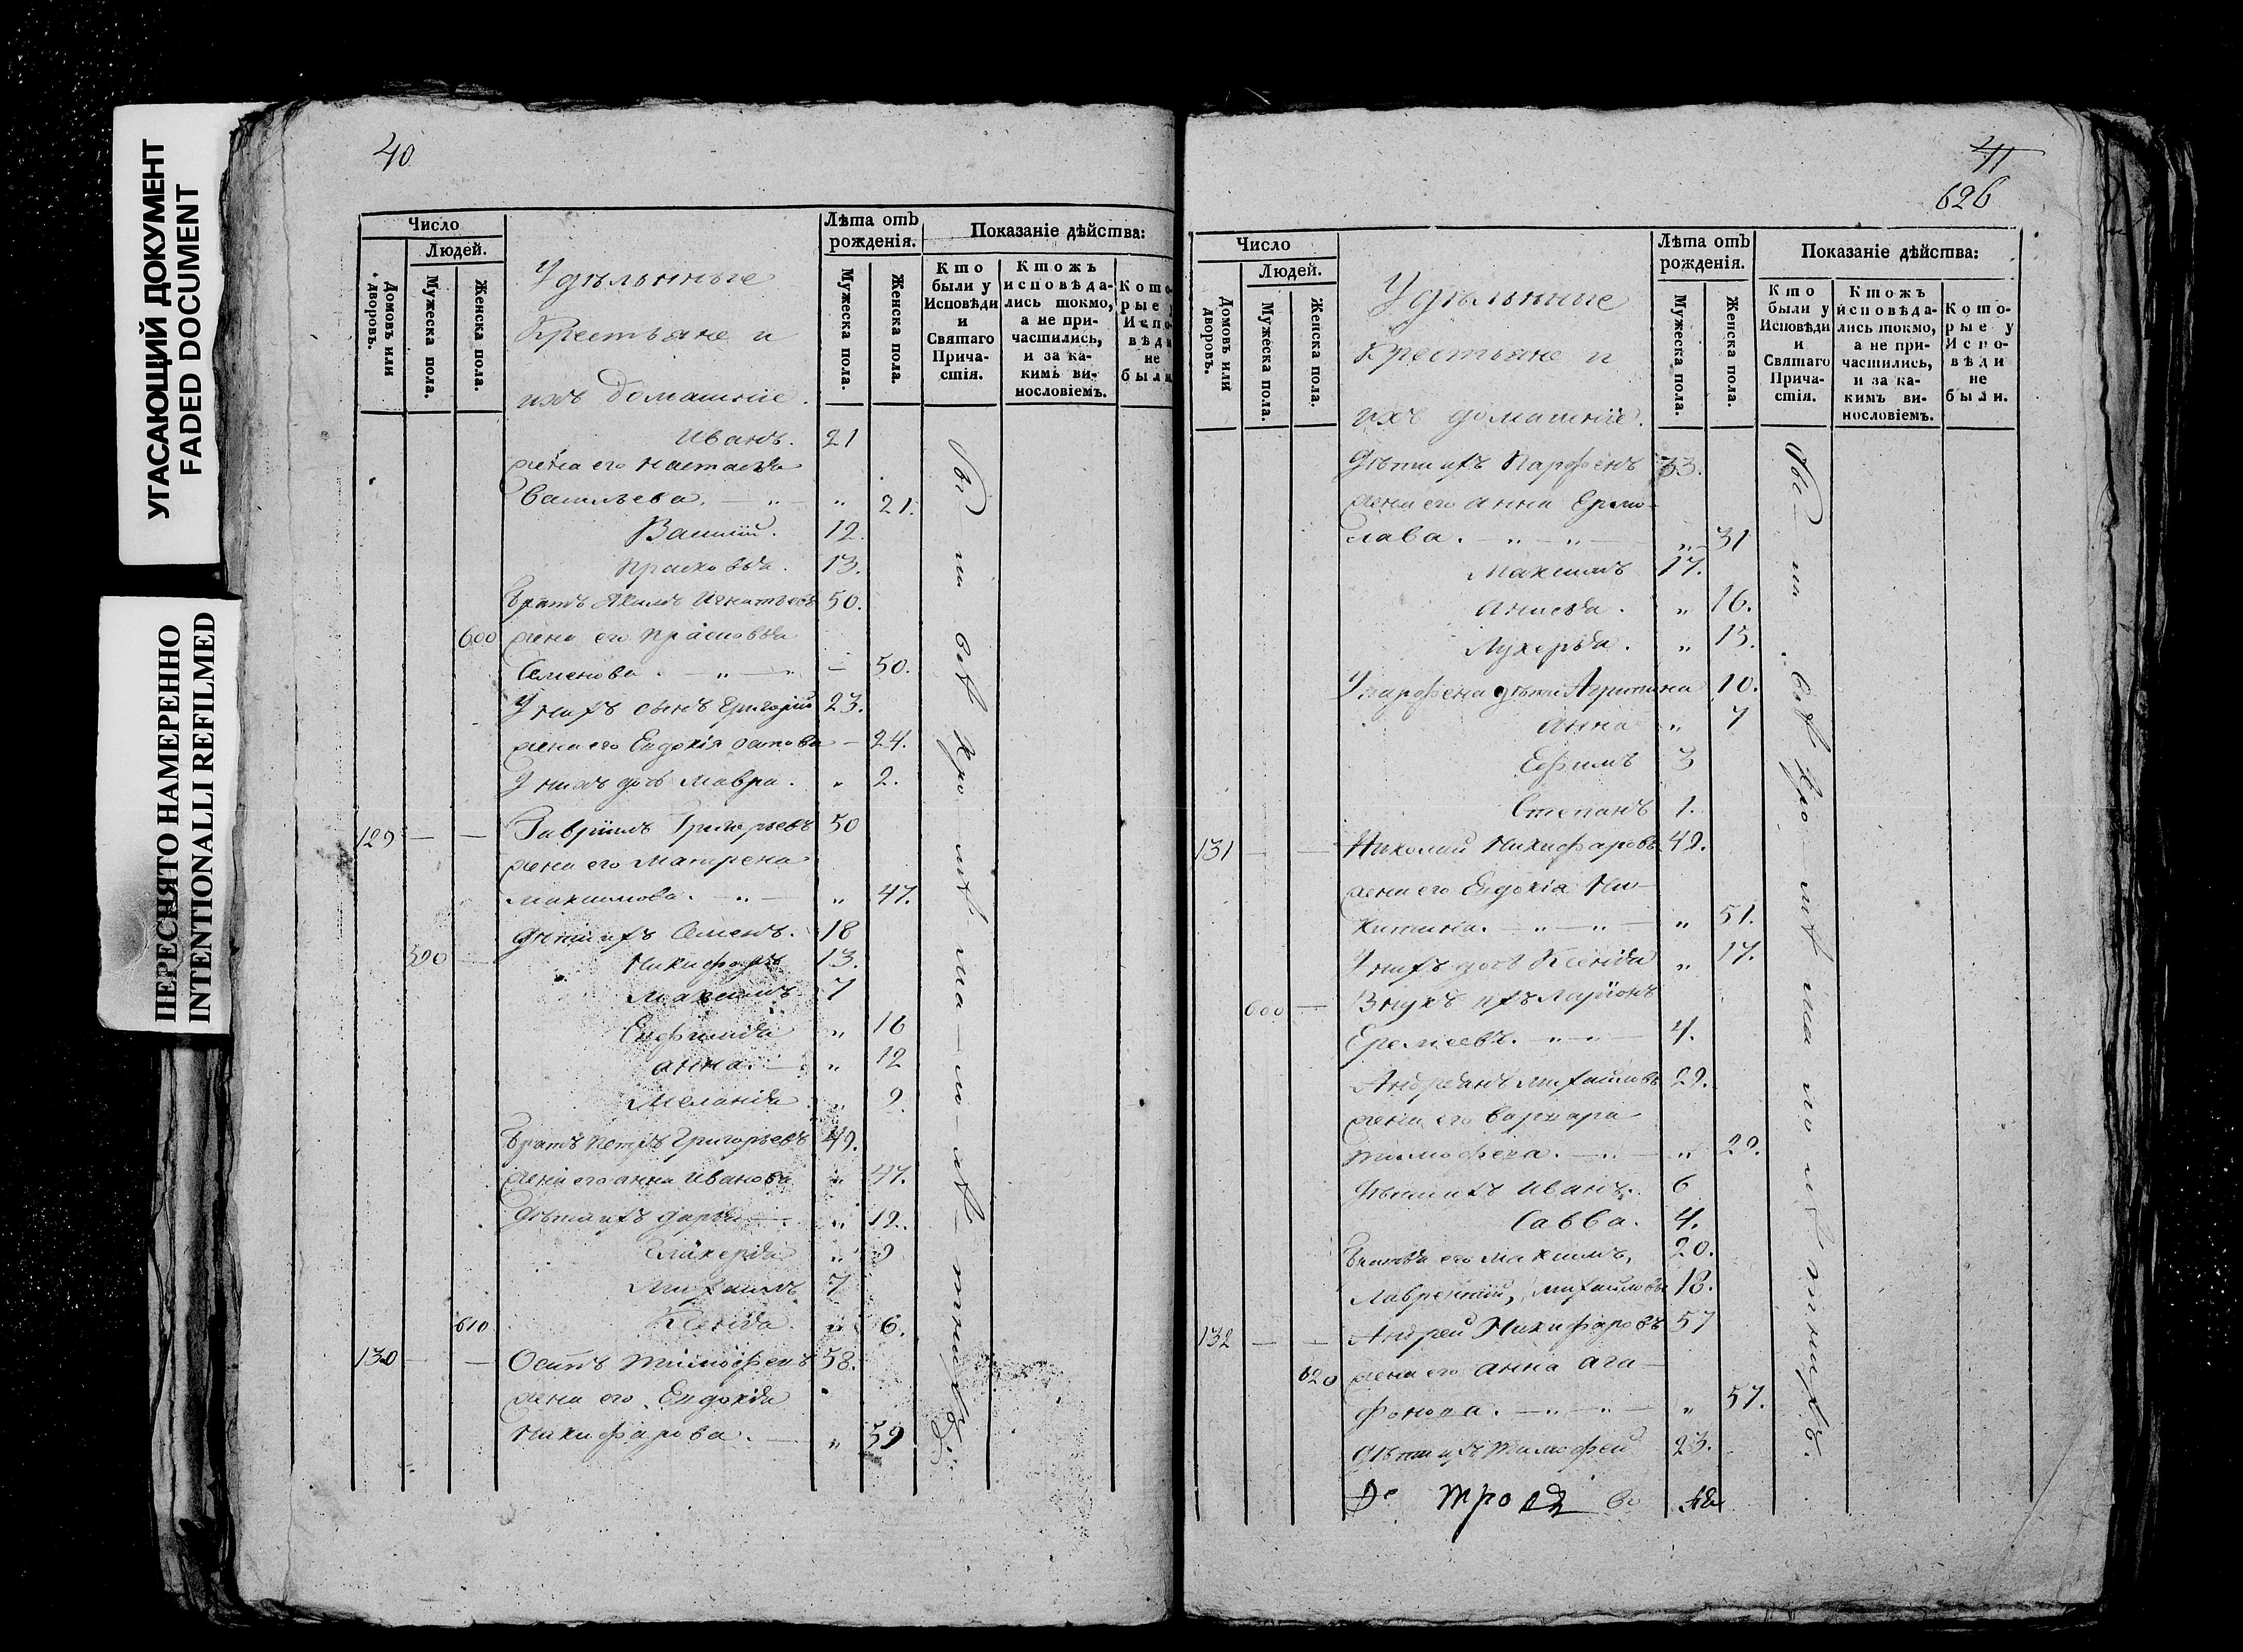 УГАСАЮЩИЙ ДОКУМЕНТ
FADED DOCUMENT
ПЕРЕСНЯТО НАМЕРЕННО
INTENTIONALLI REFILMED
40
Число
Людей.
Домовъ или дворовъ.
Мужеска пола.
Женска пола.
Удѣльнные
Крестьяне и
ихъ домашніе.
Лѣта отъ рожденія.
Мужеска пола.
Женска пола.
Показаніе дѣйства:
Кто были у Исповѣди и Святаго Прича-стія.
Ктожъ исповѣда-лись токмо, а не при-частились, и за ка-кимъ ви-нословіемъ.
Кото-рые у Испо-вѣди не были
Иванъ. 21
жена его Настасья
Васильева. 21.
Василій. 12.
Прасковья. 13.
Братъ Якимъ Игнатьевъ 50.
600 жена его Прасковья
Семенова. 50.
У нихъ сынъ Григорій 23.
жена его Евдокія 24.
У нихъ дочь Мавра. 2.
129 Гавріилъ Григорьевъ 50
жена его Матрена
Максимова. 47.
Дѣти ихъ Семенъ. 18
590 Никифоръ 13.
Максимъ 7
Евфимія 16
Анна. 12
Меланія 9.
Братъ Петръ Григорьевъ 49.
жена его Анна Иванова 47.
Дѣти ихъ Дарья 12.
Гликерія 9
Михаилъ 7
610 Ксенія 6.
130 Осипъ Тимофеевъ 58.
жена его Евдокія
Никифарова. 59
41
626
Число
Людей.
Домовъ или дворовъ.
Мужеска пола.
Женска пола.
Удѣльнные
Крестьяне и
ихъ домашніе.
Лѣта отъ рожденія.
Мужеска пола.
Женска пола.
Показаніе дѣйства:
Кто были у Исповѣди и Святаго Прича-стія.
Ктожъ исповѣда-лись токмо, а не при-частились, и за ка-кимъ ви-нословіемъ.
Кото-рые у Испо-вѣди не были.
Дѣти ихъ Парфенъ 33.
жена его Анна Ермо-
лава. 31
Максимъ 17.
Анисья. 16.
Лукерья. 15.
У Парфена дѣти Агрипина 10.
Анна 7
Ефимъ 3
Степанъ 1.
131 Николай Никифаровъ 49.
жена его Евдокія Ни-
китина. 51.
У нихъ дочь Ксенія 17.
600 Внукъ ихъ Ларіонъ
Еремеевъ. 4.
Андреянъ Михайловъ 29.
жена его Варвара
Тимофеева. 29.
Дѣти ихъ Иванъ. 6
Савва. 4.
Братья его Максимъ, 20.
Лаврентій, Михайловы 18.
132 Андрей Никифаровъ 57
620 жена его Анна Ага-
фонова. 57.
Дѣти ихъ Тимофей 23.